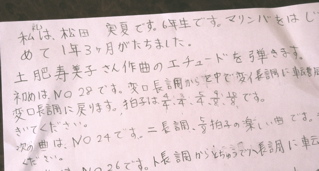 私は、松田 実夏です。6年生です。マリンバをはじ
めて1年3ヶ月がたちました。
土肥寿美子さん作曲のエチュードを弾きます。
初めは、NO28です。変ロ長調から途中で変イ長調に転調し
変ロ長調に戻ります。拍子は
きいてください。
次の曲は、NO24です。ニ長調、拍子の楽しい曲です。
ください。
NO26です。ト長調からとちゅうでハ長調に転